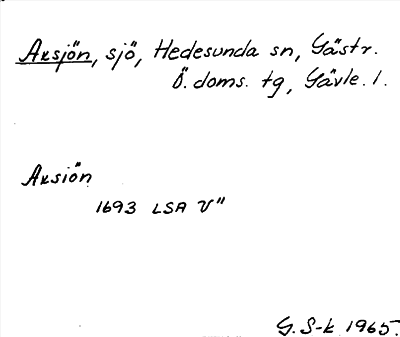 Axsjön, sjö, Hedesunda sn, Gästr.
Ö. doms. tg, Gävle. l.
Axsiön
1693 LSA V"
G. S-k 1965.